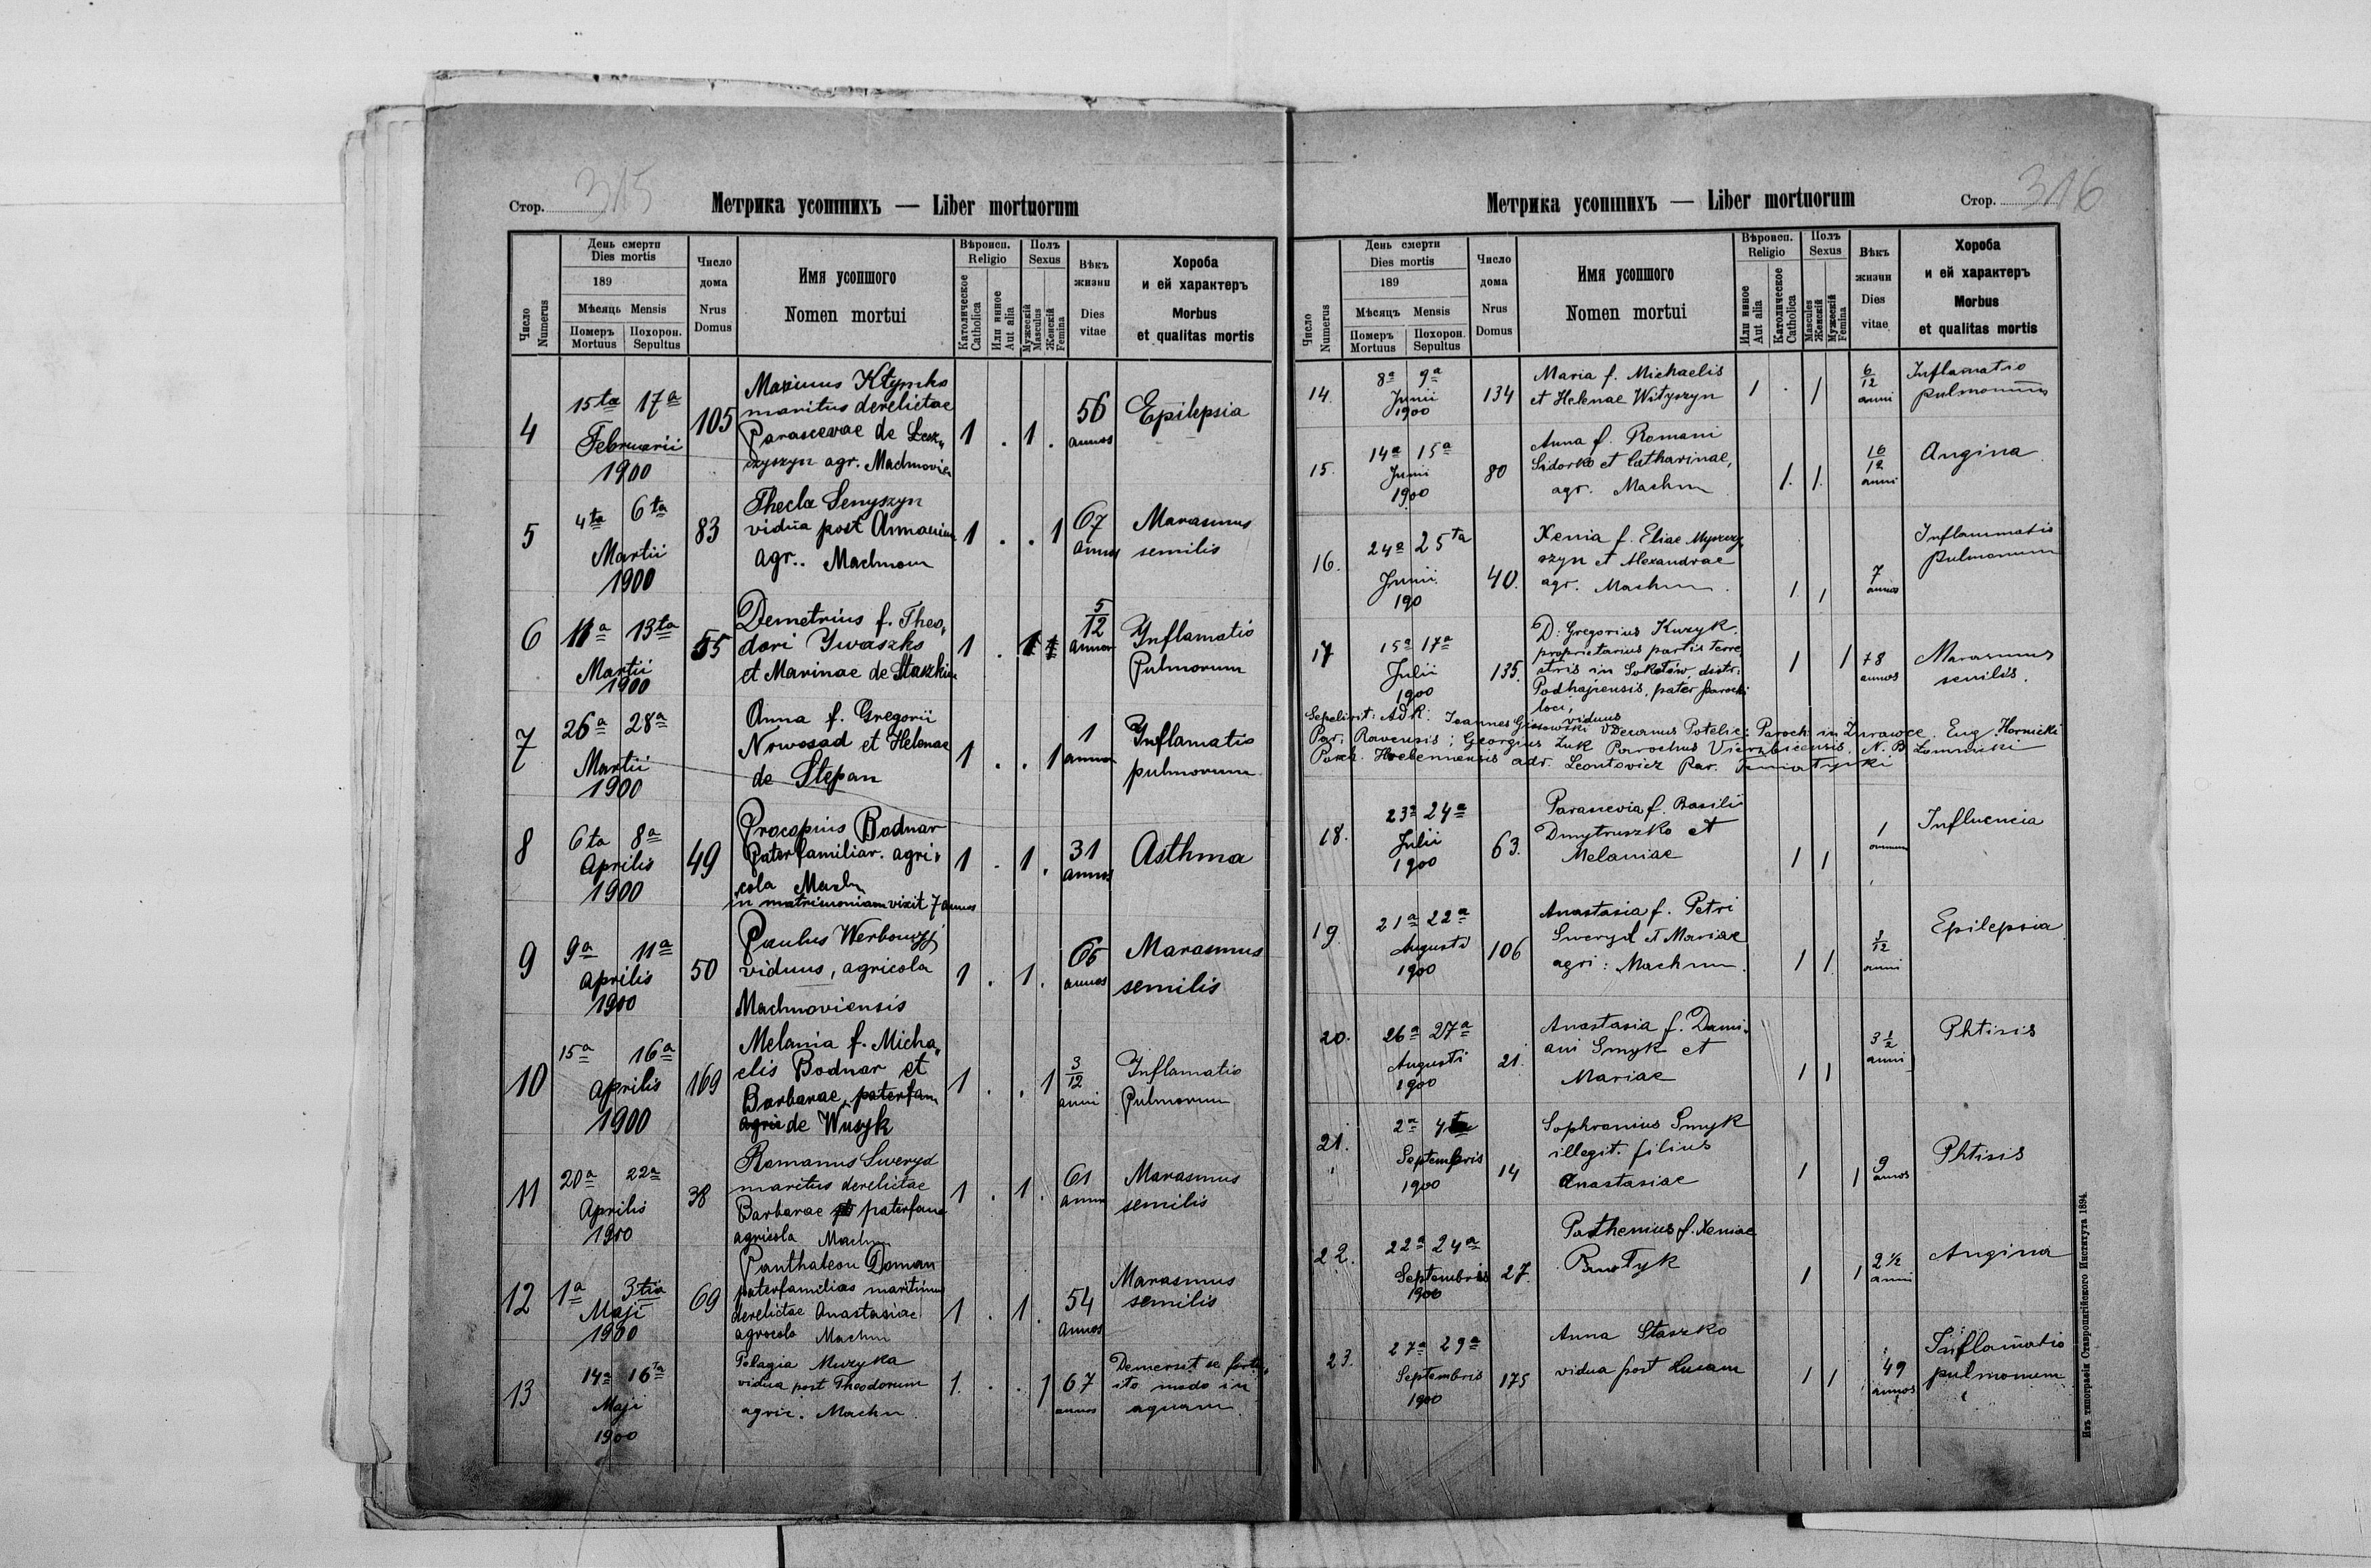 Стор. 315
Метрика усопшихъ — Liber mortuorum
Число Numerus
День смерти
Dies mortis
189
Мѣсяць Mensis
Померъ Mortuus
Похорон. Sepultus
Число дома
Nrus Domus
Имя усопшого
Nomen mortui
Вѣроисп.
Religio
Католическое Catholica
Или инное Aut alia
Полъ
Sexus
Мужескій Masculus
Женскій Femina
Вѣкъ жизни
Dies vitae
Хороба
и ей характеръ
Morbus
et qualitas mortis
4
15ta 17a
Februarii
1900
105
Maximus Ktymko
maritus derelictae
Parascevae de Lesz„
czyszyn agr. Machnovien
1 . 1 .
56
annos
Epilepsia
5
4ta 6ta
Martii
1900
83
Thecla Senyszyn
vidua post Annanium
agr.. Machnow
1 . . 1
67
annos
Marasmus
semilis
6
11a 13ta
Martii
1900
55
Demetrius f. Theo„
dori Ywaszko
et Marinae de Staszkiw
1 .
5/12
annor
Ynflamatio
Pulmorum
7
26a 28a
Martii
1900
Anna f. Gregorii
Nowosad et Helenae
de Stepan
1 . . 1
1
annor
Ynflamatio
pulmorum
8
6ta 8a
Aprilis
1900
49
Procopius Bodnar
Paterfamiliar. agri„
cola Machn
in matrimoniam vixit 7 annos
1 . 1 .
31
annos
Asthma
9
9a 11a
Aprilis
1900
50
Paulus Werbowyj
viduus, agricola
Machnoviensis
1 . 1 .
66
annos
Marasmus
semilis
10
15a 16a
Aprilis
1900
169
Melania f. Micha„
elis Bodnar et
Barbarae, paterfam
agric de Wusyk
1 . . 1
3/12
anni
Ynflamatio
Pulmorum
11
20a 22a
Aprilis
1900
38
Romanus Sweryd
maritus derelictae
Barbarae paterfam
agricola Machn
1 . 1 .
61
annos
Marasmus
semilis
12
1a 3tia
Maji
1900
69
Panthaleon Doman
paterfamilias maritimus
derelictae Anastasiae
agrocola Machn
1 . 1 .
54
annos
Marasmus
semilis
13
14a 16ta
Maji
1900
Pelagia Muzyka
vidua post Theodorum
agric. Machn.
1. . . 1
67
annos
Demersit se fortu„
ito modo in
aquam.
Метрика усопшихъ — Liber mortuorum
Стор. 316
Число Numerus
День смерти
Dies mortis
189
Мѣсяцъ Mensis
Померъ Mortuus
Похорон. Sepultus
Число дома
Nrus Domus
Имя усопшого
Nomen mortui
Вѣроисп.
Religio
Или инное Aut alia
Католическое Catholica
Полъ
Sexus
Masculus Женскій
Мужескій Femina
Вѣкъ жизни
Dies vitae
Хороба
и ей характеръ
Morbus
et qualitas mortis
14.
8a 9a
Junii
1900
134
Maria f. Michaelis
et Helenae Wityszyn
1 . 1
6/12
anni
Inflamatio
pulmonum
15.
14a 15a
Junii
1900
80
Anna f. Romani
Sidorko et Catharinae,
agr. Machn
1. 1.
10/12
anni
Angina
16.
24a 25ta
Junii
190
40.
Xenia f. Eliae Myszczy„
szyn et Alexandrae
agr. Machn.
1 1
7
annos
Inflammatio
pulmonum
17
15a 17a
Julii
1900
135.
D: Gregorius Kuzyk.
proprietarius partis terre
stris in Sokołów, distr:
Podhajensis, pater parochi
loci,
viduus
1 1
78
annos
Marasmus
senilis.
Sepelivit: ADR. Joannes Gissowski VDecanus Potelic: Paroch. in Zurawce. Eug. Hornicki
Par: Ravensis; Georgius Zuk Parochus Vierzbicensis, N. B. Lomnicki
Paroch. Hrebennensis adr. Leontovicz Par. Teniatyski
18.
23a 24a
Julii
1900
63.
Parascevia f. Basilii
Dmytruszko et
Melaniae
1 1
1
annum
Influencia
19.
21a 22a
Augusti
1900
106
Anastasia f. Petri
Sweryd et Mariae
agri: Machnn.
1 1.
anni
Epilepsia
20.
26a 27a
Augusti
1900
21.
Anastasia f. Dami„
ani Smyk et
Mariae
1 1
3 1/2
anni
Phtisis
21.
2a 4ta
Septembris
1900
14
Sophronius Smyk
illegit. filius
Anastasiae
1 1
9
annos
Phtisis
22.
22a 24a
Septembris
1900
27.
Pathenius f. Xeniae
1 1
2 1/2
anni
Angina
23.
27a 29a
Septembris
1900
175
Anna Staszko
vidua post Lucam
1 1
49
annos
Inflamatio
pulmonum
Изъ типографіи Ставропигійского Института 1894.